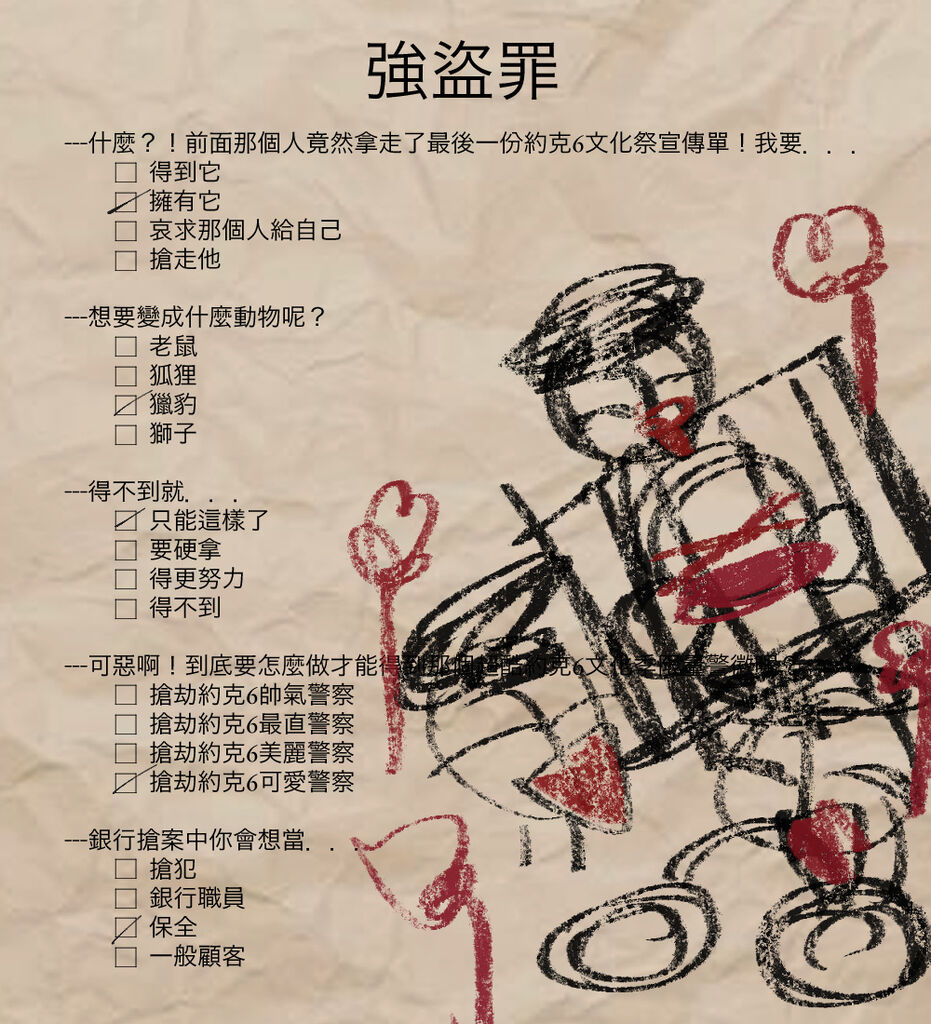 強盜罪
---什麼？！前面那個人竟然拿走了最後一份約克6文化祭宣傳單！我要．．．
得到它
擁有它
哀求那個人給自己
搶走他
---想要變成什麼動物呢？
老鼠
狐狸
獵豹
獅子
---得不到就．．．
只能這樣了
要硬拿
得更努力
得不到
---可惡啊！到底要怎麼做才能得到那個超酷約克6文化祭
搶劫約克6帥氣警察
搶劫約克6最直警察
搶劫約克6美麗警察
搶劫約克6可愛警察
---銀行搶案中你會想當．．．
搶犯
銀行職員
保全
一般顧客